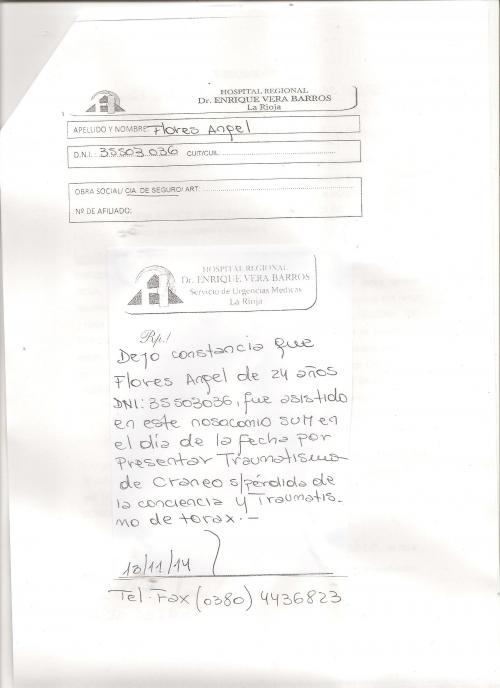 HOSPITAL REGIONAL
Dr. ENRIQUE VERA BARROS
La Rioja
APELLIDO Y NOMBRE: Flores Angel
D.N.I.: 35503036 CUIT/CUIL:
OBRA SOCIAL/ CIA. DE SEGURO/ ART:
Nº DE AFILIADO:
HOSPITAL REGIONAL
Dr. ENRIQUE VERA BARROS
Servicio de Urgencias Medicas
La Rioja
Rp.!
Dejo constancia que
Flores Angel de 24 años
DNI: 35503036, fue asistido
en este nosocomio SUM en
el día de la fecha por
Presentar Traumatismo
de Craneo s/pérdida de
la conciencia y Traumatis-
mo de torax.-
18/11/14
Tel. Fax (0380) 4436823